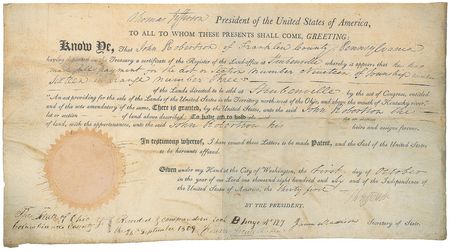 Thomas Jefferson President of the United States of America,
TO ALL TO WHOM THESE PRESENTS SHALL COME, GREETING:
KNOW YE, That John Robertson of Franklin County Pennsylvania
having deposited in the Treasury a certificate of the Register of the Land-office at Steubenville whereby it appears that he has
made full payment for the lot or section number nineteen of Township number
in range number three
of the Lands directed to be sold at Steubenville by the act of Congress, entitled
"An act providing for the sale of the Lands of the United States in the Territory north-west of the Ohio, and above the mouth of Kentucky river,"
and of the acts amendatory of the same, There is granted, by the United States, unto the said John Robertson the
lot or section of land above described: To have and to hold the said
of land, with the appurtenances, unto the said John Robertson his heirs and assigns forever.
In testimony whereof, I have caused these Letters to be made Patent, and the Seal of the United States
to be hereunto affixed.
Given under my Hand at the City of Washington, the first day of October
in the year of our Lord one thousand eight hundred and and of the Independence of
the United States of America, the thirty first
The State of Ohio
Columbiana County
Received & recorded in book B page No. 127
September 1809
James Madison Secretary of State.